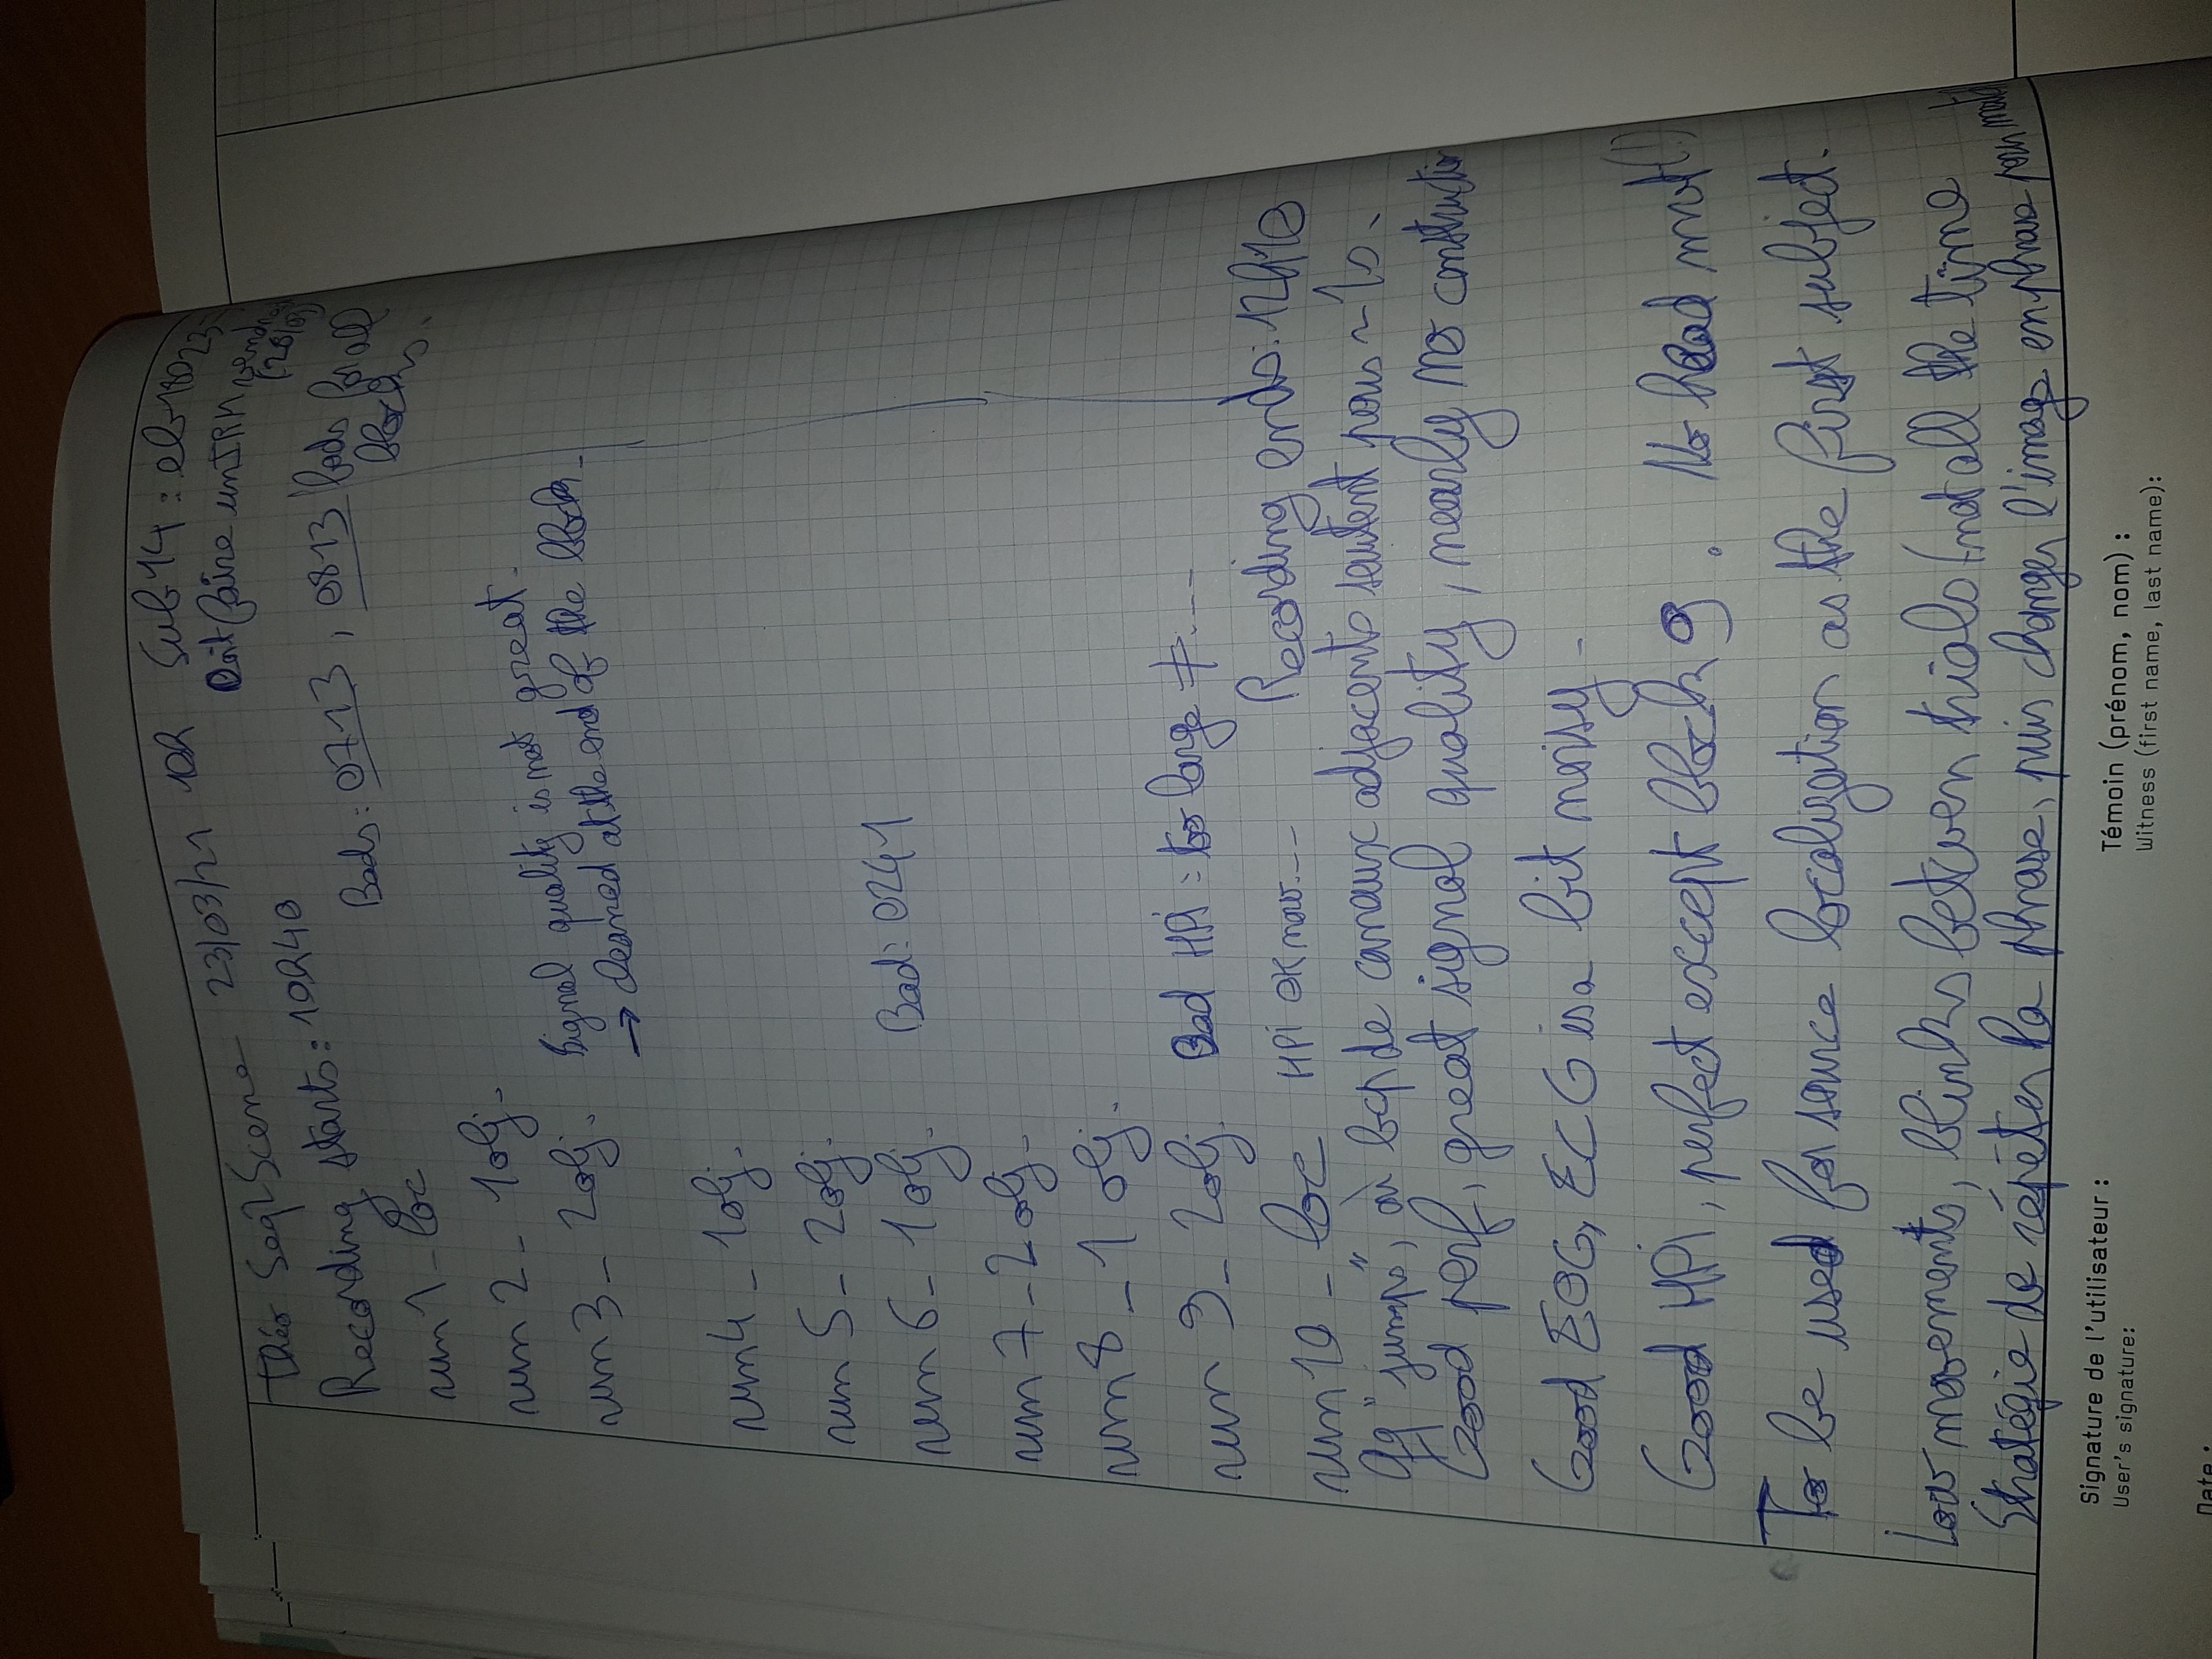 Théo Seq2Scene 23/03/21 10h Sub14 : eb18023
Doit faire un IRM
Recording starts: 10h40
Bads: 0713, 0813 bads for all
blocks.
run 1 _ loc
run 2 _ 1obj.
run 3 _ 2obj. Signal quality is not great.
→ cleaned at the end of the block.
run 4 _ 1obj.
run 5 _ 2obj.
run 6 _ 1obj. Bad: 0241
run 7 _ 2obj.
run 8 _ 1 obj.
run 9 _ 2obj. Bad HPi : too large ≠....
run 10 _ loc HPi OK now.... Recording ends: 12h10
Qq "jumps", où bcp de canaux adjacents sautent pous ~ 1s.
Good perf, great signal quality, nearly no construction
Good EOG, ECG is a bit noisy.
Good HPi, perfect except block 9. No head mvt (!)
To be used for source localization as the first subject.
Low movements, blinks between trials (not all the time
Stratégie de répéter la phrase, puis changer l'image en phrase pour
Signature de l'utilisateur :
User's signature:
Témoin (prénom, nom) :
Witness (first name, last name):
Date :